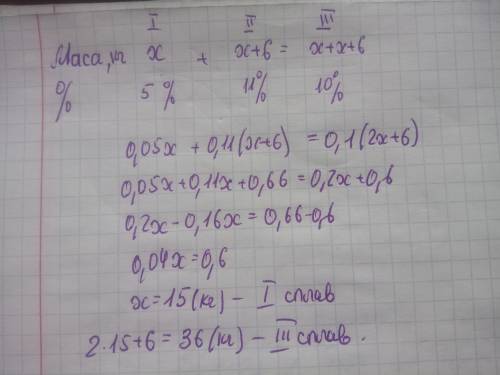 I II III
Маса, кг x + x+6 = x+x+6
% 5% 11% 10%
0,05x + 0,11(x+6) = 0,1(2x+6)
0,05x+0,11x+0,66=0,2x+0,6
0,2x-0,16x=0,66-0,6
0,04x=0,6
x=15(кг) - I сплав
2·15+6=36(кг) - III сплав.